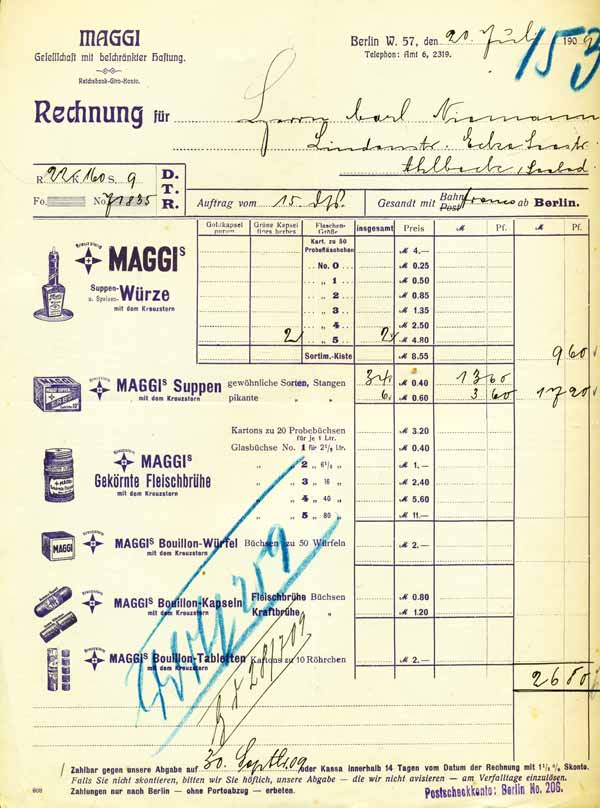 MAGGI
Gesellschaft mit beschränkter Haftung.
Reichsbank-Giro-Konto.
Berlin W. 57, den 20. Juli 1909
Telephon: Amt 6, 2319.
153
Rechnung für Herrn Carl Niemann
Lindenstr. Ecke Seestr.
Ahlbeck, Seebad
R. 22 K. 160 S. 9
Fo. No. 71835
D.
T.
R.
Auftrag vom 15. ds.
Gesandt mit Bahn Post franco ab Berlin.
Goldkapsel purum
Grüne Kapsel fines herbes
Flaschen-Größe
insgesamt
Preis
M
Pf.
M
Pf.
KREUZ STERN
MAGGIS
Suppen-
u. Speisen-Würze
mit dem Kreuzstern
Kart. zu 50
Probefläschchen
M 4.—
No. 0 M 0.25
„ 1 „ 0.50
„ 2 „ 0.85
„ 3 „ 1.35
„ 4 „ 2.50
2 „ 5 2 „ 4.80
Sortim.-Kiste M 8.55 9 60
MAGGIS Suppen gewöhnliche Sorten, Stangen 34 M 0.40 13 60
mit dem Kreuzstern pikante „ „ 6 M 0.60 3 60 17 20
Kartons zu 20 Probebüchsen M 3.20
für je 1 Ltr.
Glasbüchse No. 1 für 2½ Ltr. M 0.40
MAGGIS
Gekörnte Fleischbrühe
mit dem Kreuzstern
„ „ 2 „ 6½ „ M 1.—
„ „ 3 „ 16 „ M 2.40
„ „ 4 „ 40 „ M 5.60
„ „ 5 „ 80 „ M 11.—
MAGGI
MAGGIS Bouillon-Würfel Büchsen zu 50 Würfeln M 2.—
mit dem Kreuzstern
MAGGIS Bouillon-Kapseln Fleischbrühe Büchsen M 0.80
mit dem Kreuzstern Kraftbrühe „ M 1.20
MAGGIS Bouillon-Tabletten Kartons zu 10 Röhrchen M 2.—
mit dem Kreuzstern
26 80
28/7 09
Zahlbar gegen unsere Abgabe auf 30. Septb. 09 oder Kassa innerhalb 14 Tagen vom Datum der Rechnung mit 1½ % Skonto.
Falls Sie nicht skontieren, bitten wir Sie höflich, unsere Abgabe — die wir nicht avisieren — am Verfalltage einzulösen.
Zahlungen nur nach Berlin — ohne Portoabzug — erbeten.
Postscheckkonto: Berlin No. 206.
608